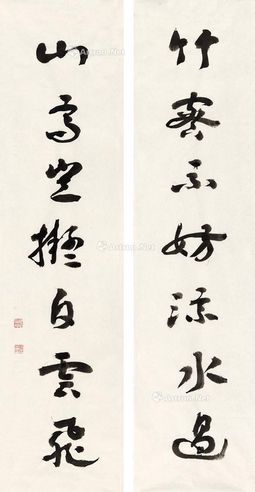 竹密不妨流水過
山高豈礙白雲飛
Artron.Net